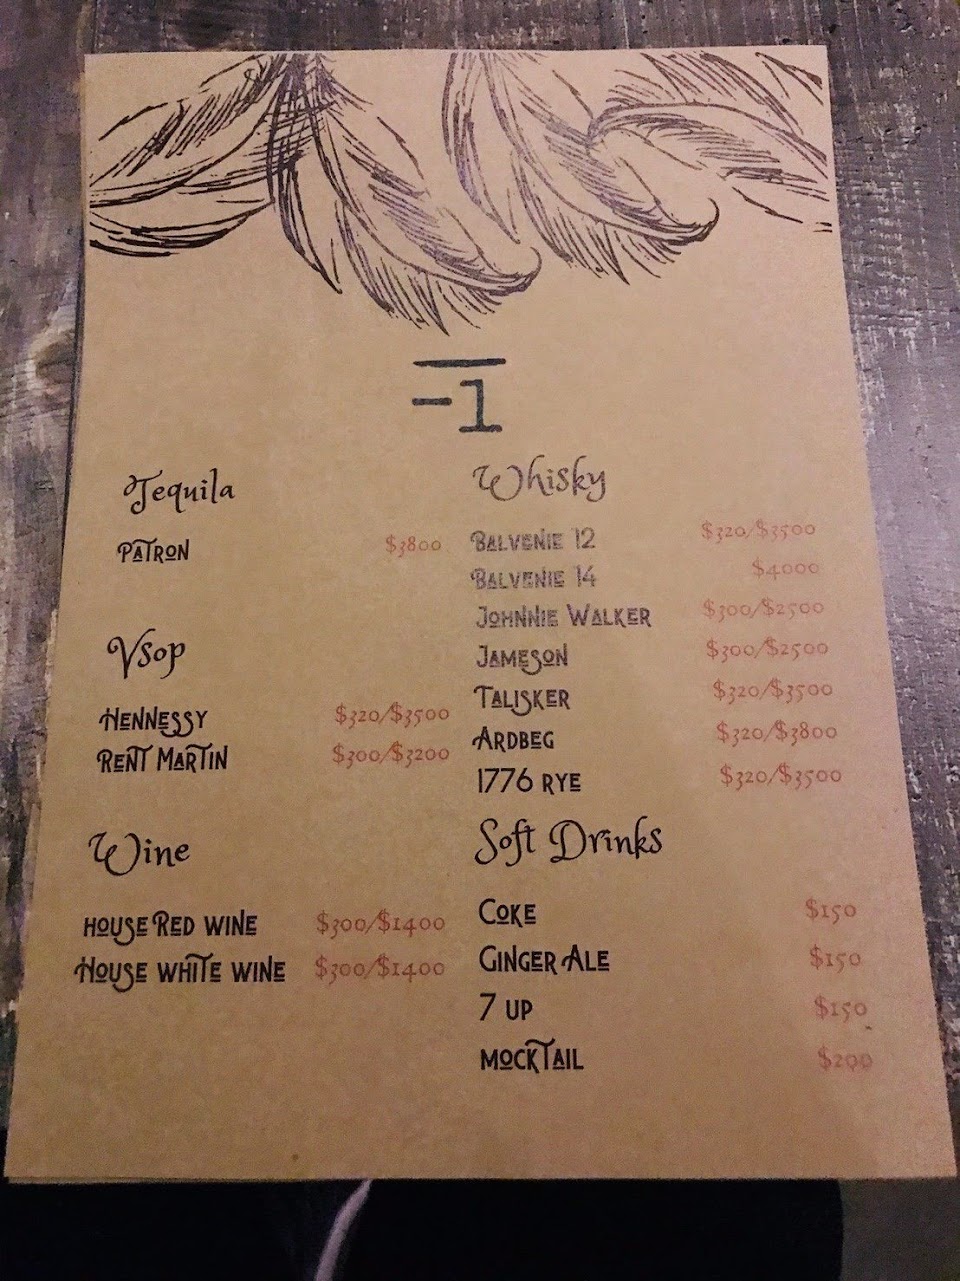 -1
Tequila
PATRON $3800
Vsop
HENNESSY $320/$3500
RENT MARTIN $300/$3200
Wine
HOUSE RED WINE $300/$1400
HOUSE WHITE WINE $300/$1400
Whisky
BALVENIE 12 $320/$3500
BALVENIE 14 $4000
JOHNNIE WALKER $300/$2500
JAMESON $300/$2500
TALISKER $320/$3500
ARDBEG $320/$3800
1776 RYE $320/$3500
Soft Drinks
COKE $150
GINGER ALE $150
7 UP $150
MOCKTAIL $200